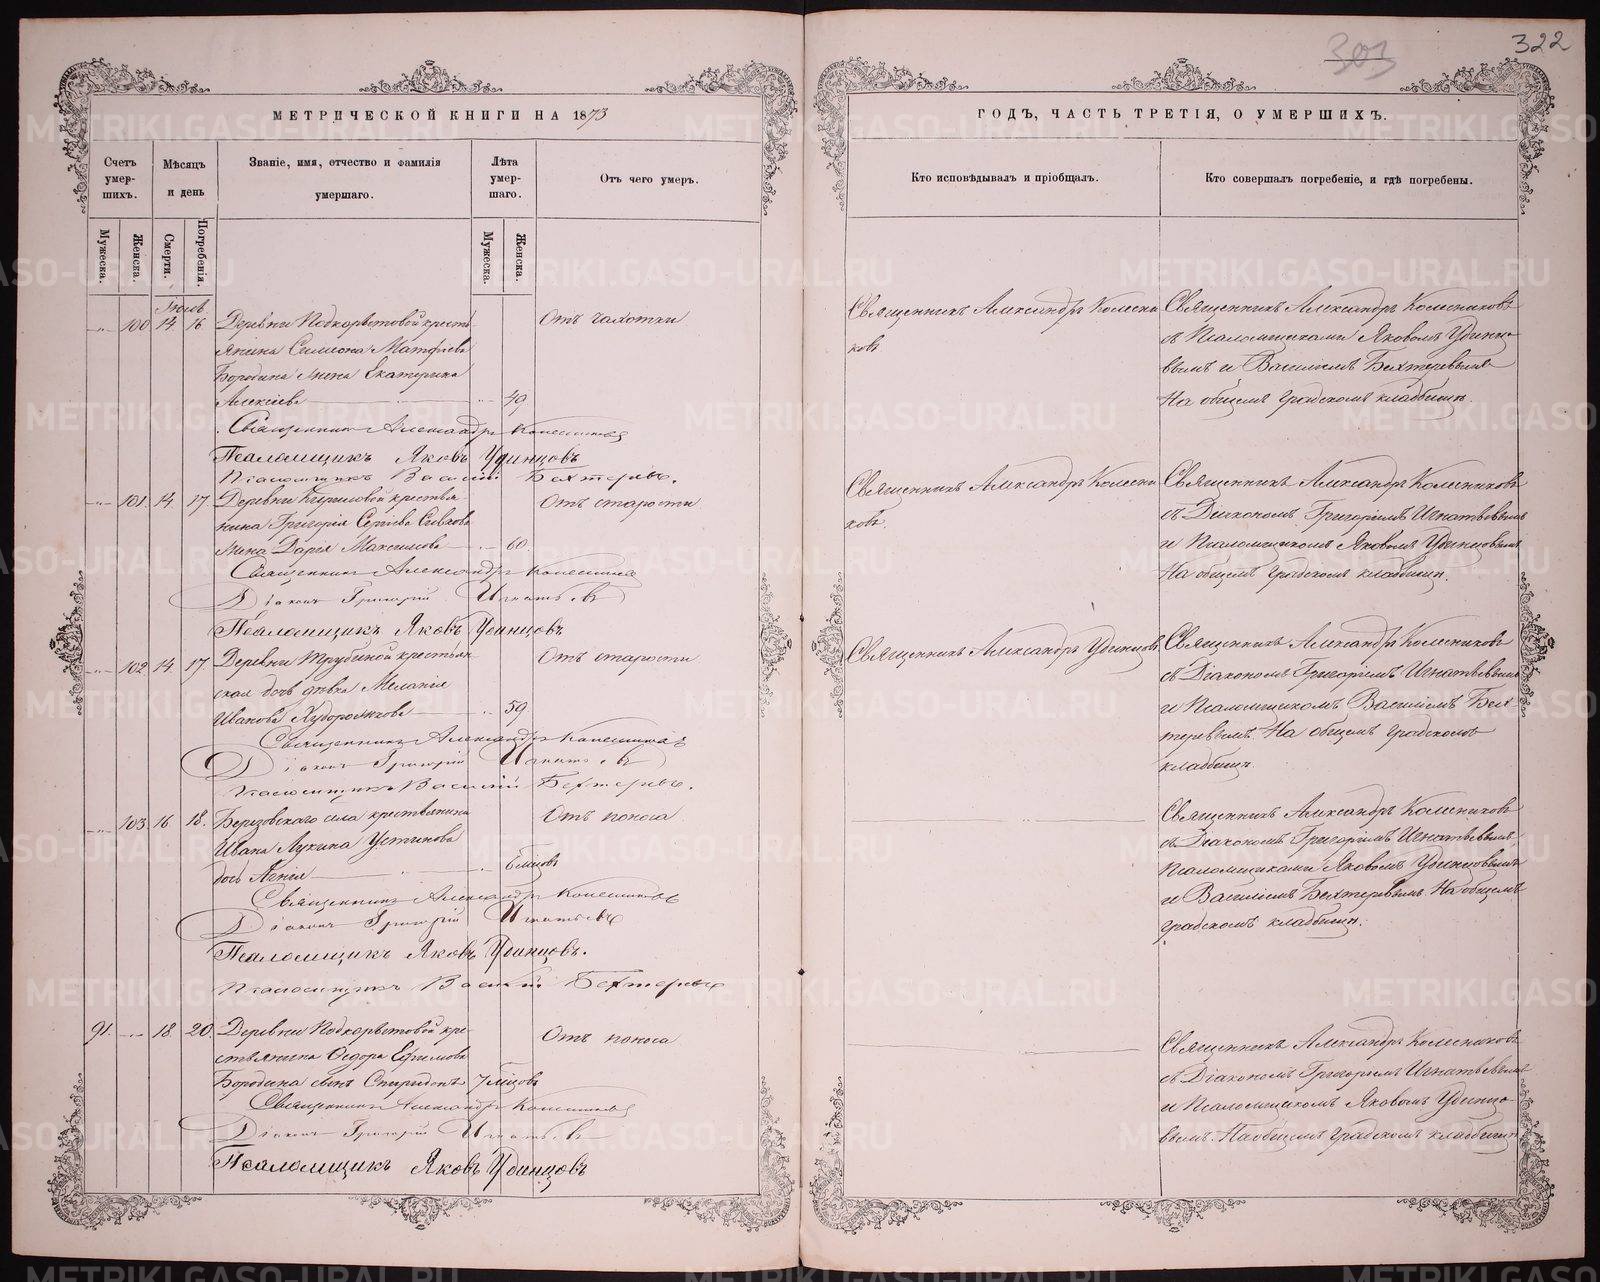 322
303
МЕТРИЧЕСКОЙ КНИГИ НА 1873
ГОДЪ, ЧАСТЬ ТРЕТІЯ, О УМЕРШИХЪ.
Счетъ умер-шихъ.
Мѣсяцъ и день
Званіе, имя, отчество и фамилія умершаго.
Лѣта умер-шаго.
Отъ чего умеръ.
Кто исповѣдывалъ и пріобщалъ.
Кто совершалъ погребеніе, и гдѣ погребены.
Мужеска.
Женска.
Смерти.
Погребенія.
Мужеска.
Женска.
100 14 16
Деревни Подкорытовой кресть-
янина Симеона Матфіева
Бородина жена Екатерина
Алексіева 49
Отъ чахотки
Священникъ Александръ Колесни
ковъ
Священникъ Александръ Колесниковъ
съ Псаломщиками Яковомъ Удинцо-
вымъ и Василіемъ Бехтеревымъ
На общемъ градскомъ кладбищѣ.
Священникъ Александръ Колесниковъ
Псаломщикъ Яковъ Удинцовъ
Псаломщикъ Василій Бехтеревъ.
101. 14. 17.
Деревни Кириловой крестья-
нина Григорія Сергіева
жена Дарія Максимова 60.
Отъ старости
Священникъ Александръ Колесни
ковъ.
Священникъ Александръ Колесниковъ
съ Діакономъ Григоріемъ Игнатьевымъ
и Псаломщикомъ Яковомъ Удинцовымъ
На общемъ градскомъ кладбищѣ.
Священникъ Александръ Колесниковъ
Діаконъ Григорій Игнатьевъ
Псаломщикъ Яковъ Удинцовъ
102 14. 17.
Деревни Трубиной крестьян
ская дочь дѣвка Меланія
Иванова Худорожкова 59
Отъ старости
Священникъ Александръ Удинцовъ
Священникъ Александръ Колесниковъ
съ Діакономъ Григоріемъ Игнатьевымъ
и Псаломщикомъ Василіемъ Бех
теревымъ. На общемъ градскомъ
кладбищѣ.
Священникъ Александръ Колесниковъ
Діаконъ Григорій Игнатьевъ
Псаломщикъ Василій Бехтеревъ.
103. 16 18.
Березовскаго села крестьянина
Ивана Лукина Устинова
дочь 6 мцовъ
Отъ поноса
Священникъ Александръ Колесниковъ
съ Діакономъ Григоріемъ Игнатьевымъ,
Псаломщиками Яковомъ Удинцовымъ
и Василіемъ Бехтеревымъ На общемъ
градскомъ кладбищѣ.
Священникъ Александръ Колесниковъ
Діаконъ Григорій Игнатьевъ
Псаломщикъ Яковъ Удинцовъ.
Псаломщикъ Василій Бехтеревъ
91. 18. 20.
Деревни Подкорытовой кре-
стьянина Ѳедора Ефимова
Бородина сынъ Спиридонъ 7 мцовъ
Отъ поноса
Священникъ Александръ Колесниковъ
съ Діакономъ Григоріемъ Игнатьевымъ
и Псаломщикомъ Яковомъ Удинцо-
вымъ. На общемъ градскомъ кладбищѣ
Священникъ Александръ Колесниковъ
Діаконъ Григорій Игнатьевъ
Псаломщикъ Яковъ Удинцовъ
METRIKI.GASO-URAL.RU